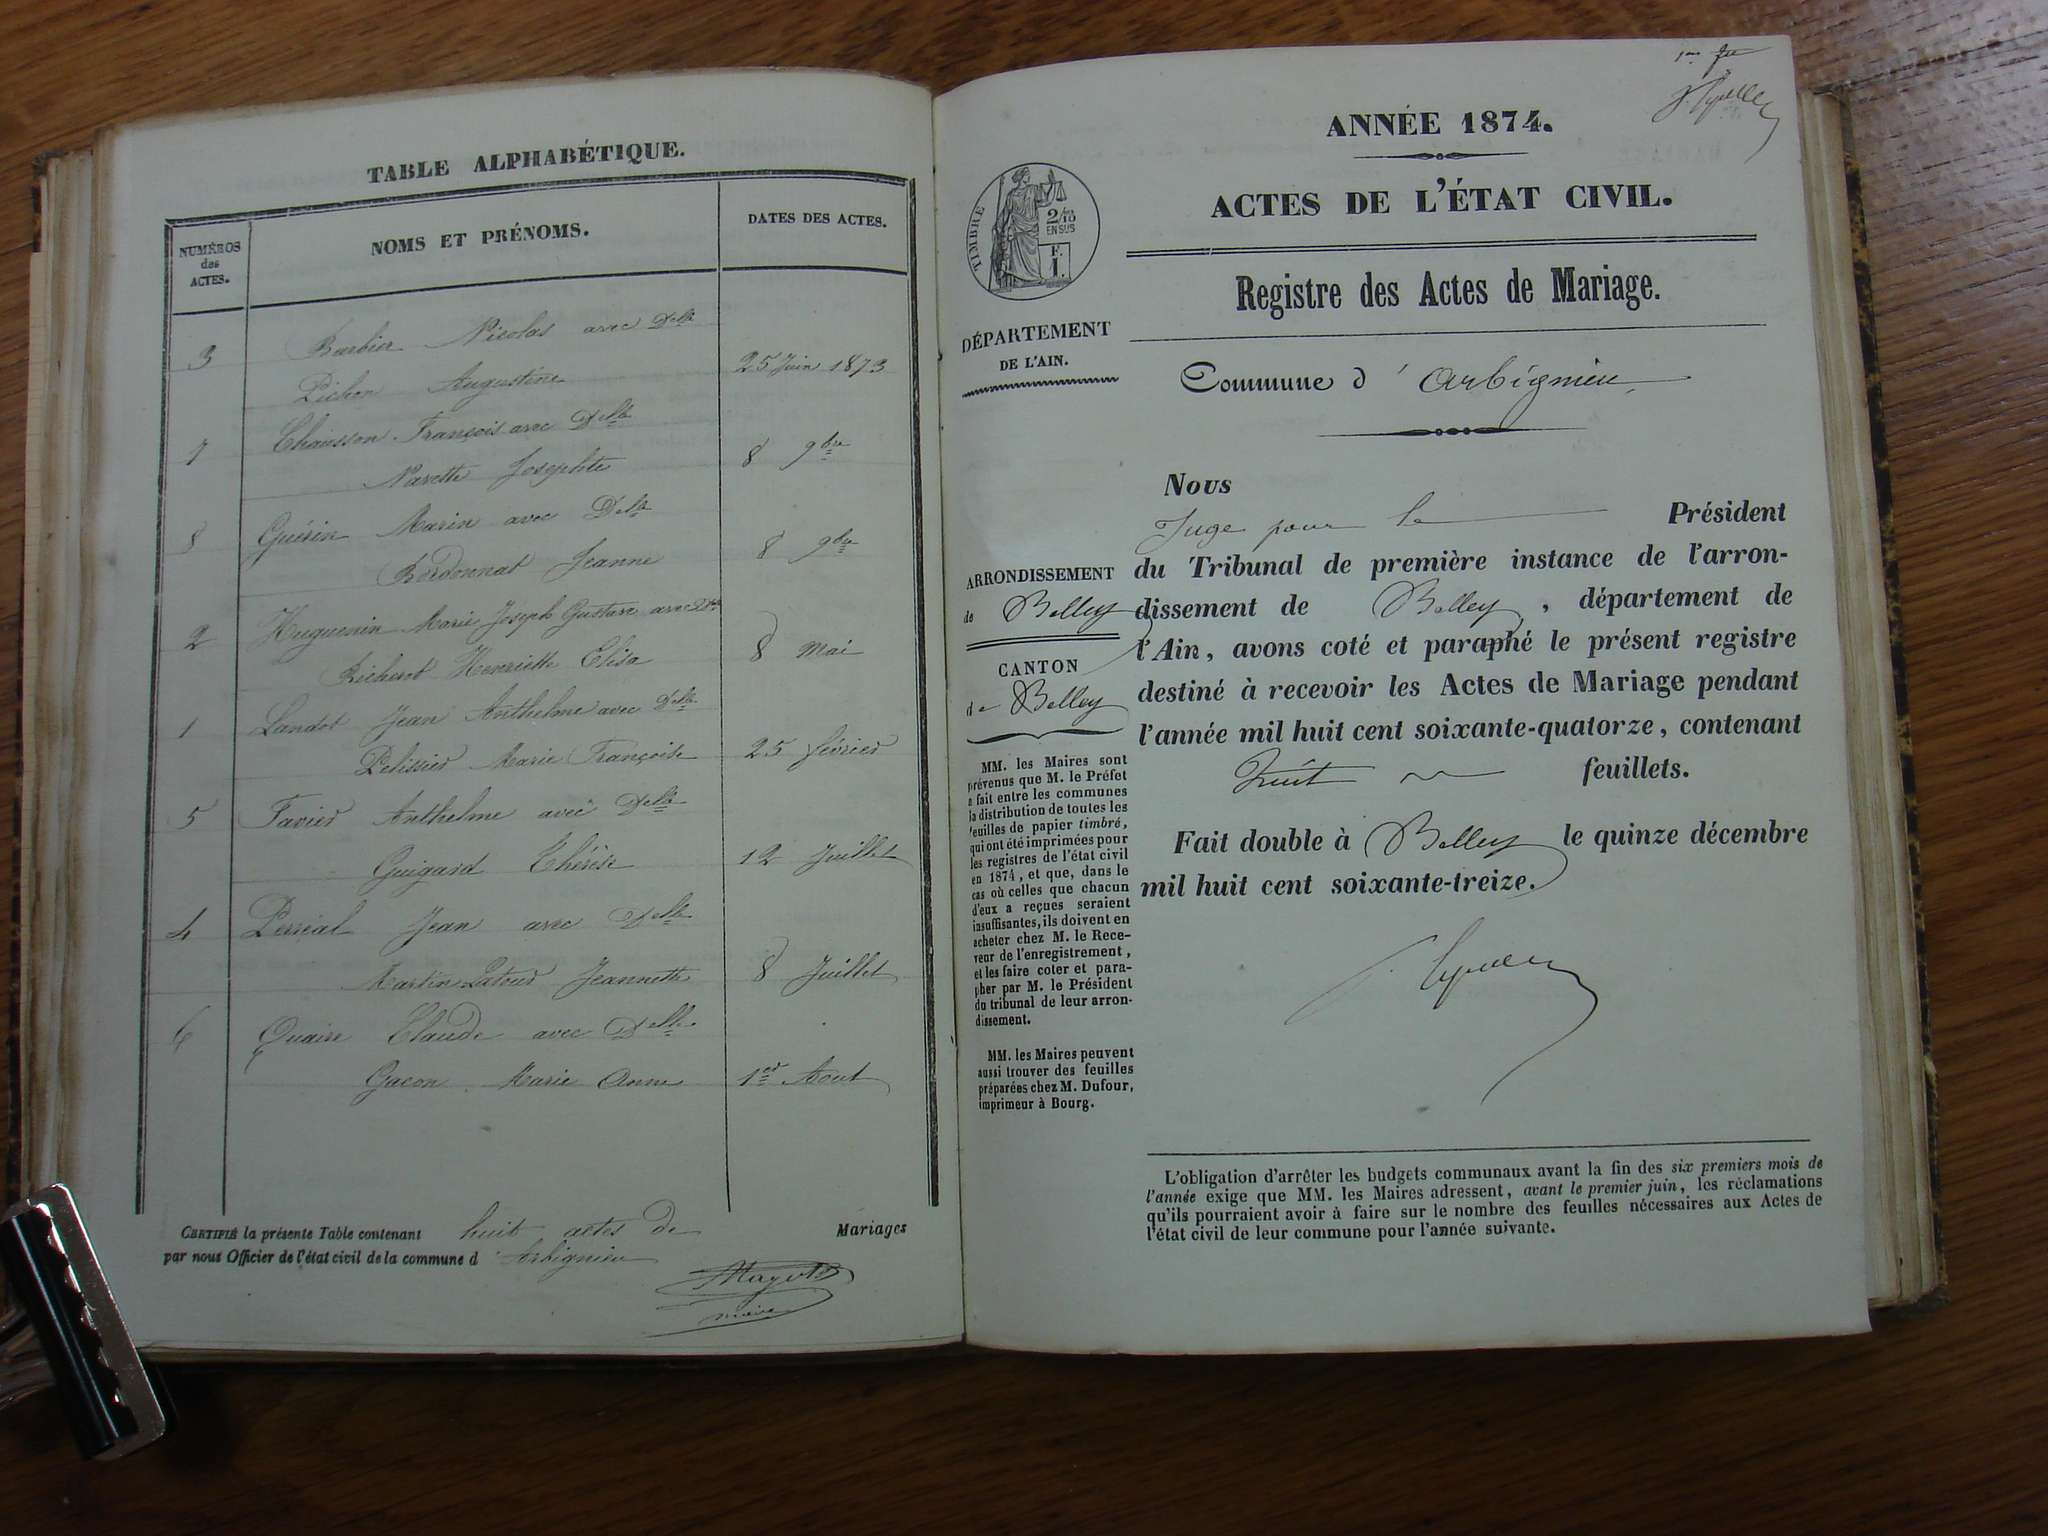 TABLE ALPHABÉTIQUE.
NUMÉROS
des
ACTES.
NOMS ET PRÉNOMS.
DATES DES ACTES.
3 Barbier Nicolas avec Delle
Pichon Augustine 25 Juin 1873
7 Chausson François avec Delle
Navette Josephte 8 9bre
8 Guérin Marin avec Delle
Bordonnat Jeanne 8 9bre
2 Huguenin Marie Joseph Gustave avec Dlle
Richerot Henriette Elisa 8 Mai
1 Landot Jean Anthelme avec Delle
Pelissier Marie Françoise 25 février
5 Favier Anthelme avec Delle
Guigard Thérèse 12 Juillet
4 Perréal Jean avec Delle
Martin Latour Jeannette 8 Juillet
6 Quaire Claude avec Delle
Gacon Marie Anne 1er Aout
CERTIFIÉ la présente Table contenant huit actes de Mariages
par nous Officier de l'état civil de la commune d'Arbignieu
maire
ANNÉE 1874.
ACTES DE L'ÉTAT CIVIL.
TIMBRE
2/10
EN SUS
F.
1.
Registre des Actes de Mariage.
DÉPARTEMENT
DE L'AIN.
Commune d'Arbignieu
Nous
Juge pour le Président
du Tribunal de première instance de l'arron-
dissement de Belley, département de
l'Ain, avons coté et paraphé le présent registre
destiné à recevoir les Actes de Mariage pendant
l'année mil huit cent soixante-quatorze, contenant
huit feuillets.
Fait double à Belley le quinze décembre
mil huit cent soixante-treize.
ARRONDISSEMENT
de Belley
CANTON
de Belley
MM. les Maires sont
prévenus que M. le Préfet
a fait entre les communes
la distribution de toutes les
feuilles de papier timbré,
qui ont été imprimées pour
les registres de l'état civil
en 1874, et que, dans le
cas où celles que chacun
d'eux a reçues seraient
insuffisantes, ils doivent en
acheter chez M. le Rece-
veur de l'enregistrement,
et les faire coter et para-
pher par M. le Président
du tribunal de leur arron-
dissement.
MM. les Maires peuvent
aussi trouver des feuilles
préparées chez M. Dufour,
imprimeur à Bourg.
L'obligation d'arrêter les budgets communaux avant la fin des six premiers mois de
l'année exige que MM. les Maires adressent, avant le premier juin, les réclamations
qu'ils pourraient avoir à faire sur le nombre des feuilles nécessaires aux Actes de
l'état civil de leur commune pour l'année suivante.